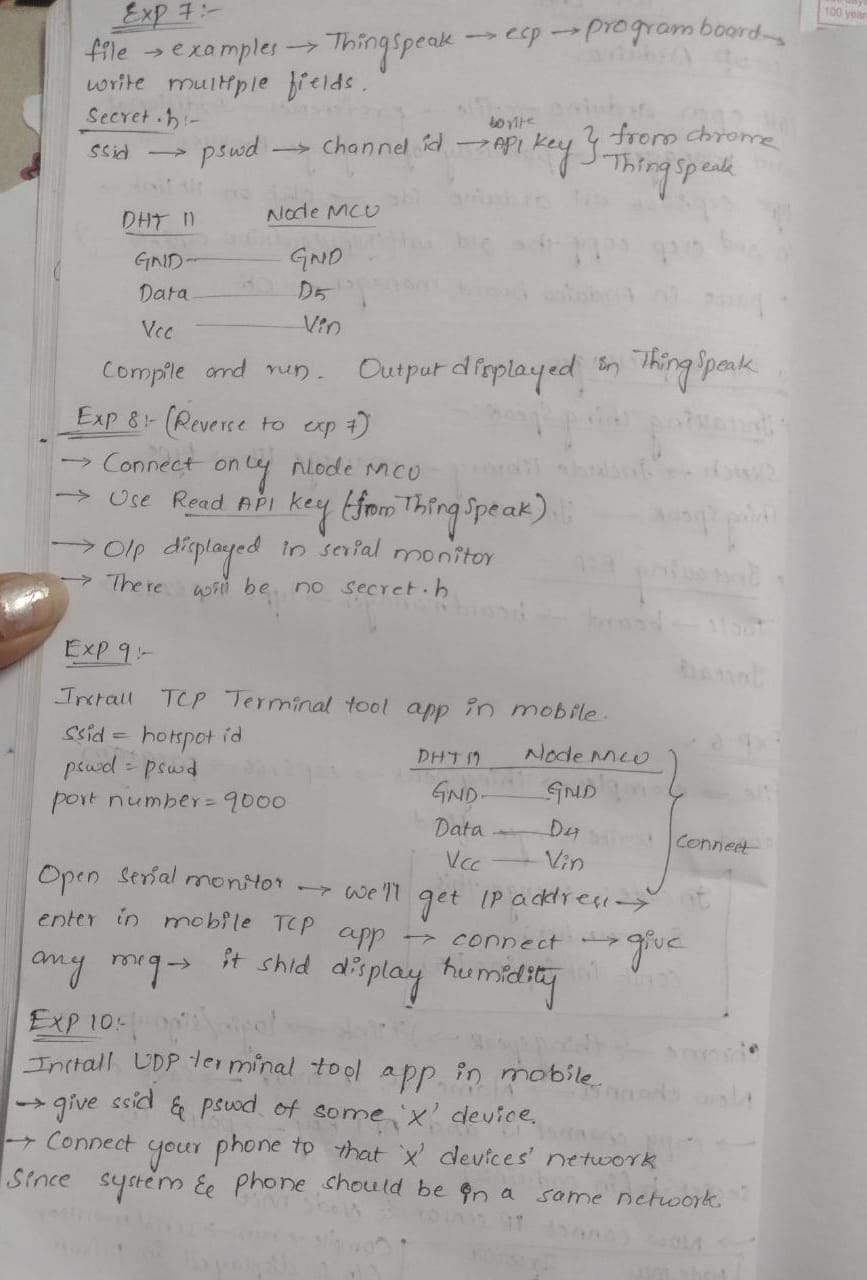 100 year
Exp 7:-
file → examples → Thingspeak → esp → program board →
write multiple fields.
Secret.h:-
write
ssid → pswd → Channel id → API key } from chrome
ThingSpeak
DHT 11 Node MCU
GND — GND
Data — D5
Vcc — Vin
Compile and run. Output displayed in ThingSpeak
Exp 8:- (Reverse to exp 7)
→ Connect only Node MCU
→ Use Read API key (from ThingSpeak)
→ O/p displayed in serial monitor
→ There will be no secret.h
Exp 9:-
Install TCP Terminal tool app in mobile.
ssid = hotspot id
pswd = pswd
port number = 9000
DHT 11 Node MCU
GND — GND
Data — D4
Vcc — Vin
Connect
Open serial monitor → we'll get IP address →
enter in mobile TCP app → connect → give
any msg → it shld display humidity
Exp 10:-
Install UDP terminal tool app in mobile
→ give ssid & pswd of some 'x' device.
→ Connect your phone to that 'x' devices' network
Since system & phone should be in a same network.